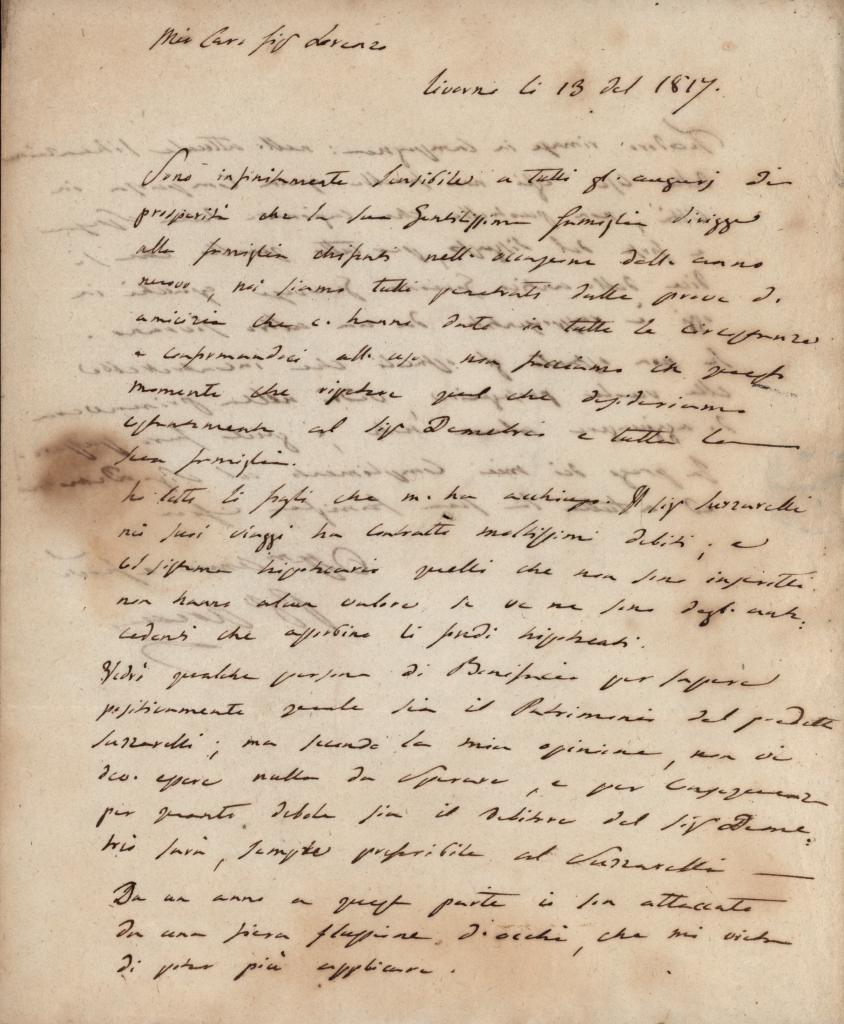 Mio Caro Sigr Lorenzo
Livorno li 13 del 1817.
Sono infinitamente sensibile a tutti gl'augurj di
prosperità che la sua Gentilissima famiglia dirigge
alla famiglia nell' occasione dell' anno
nuovo, noi siamo tutti penetrati dalle prove di
amicizia che ci hanno dato in tutte le circostanze
e confirmandoci all' non facciamo in questo
momento che ripetere quel che desideriamo
al Sigr Demetrio e tutta la
sua famiglia.
ho letto li fogli che m' ha acchiuso. Il Sigr Suzzarelli
nei suoi viaggi ha contratto moltissimi debiti; e
al sistema hippotecario quelli che non sono inscritti
non hanno alcun valore se ve ne sono degl' ante:
cedenti che assorbino li fondi hippotecati.
Vedrò qualche persona di Bonifacio per sapere
positivamente quale sia il Patrimonio del predetto
Suzzarelli; ma secondo la mia opinione, non vi
dev' essere nulla da sperare, e per conseguenza
per quanto debole sia il debitore del Sigr Deme:
trio sarà, sempre preferibile al Suzzarelli
Da un anno a questa parte io son attaccato
da una fiera flussione d'occhi, che mi vieta
di poter più applicare.